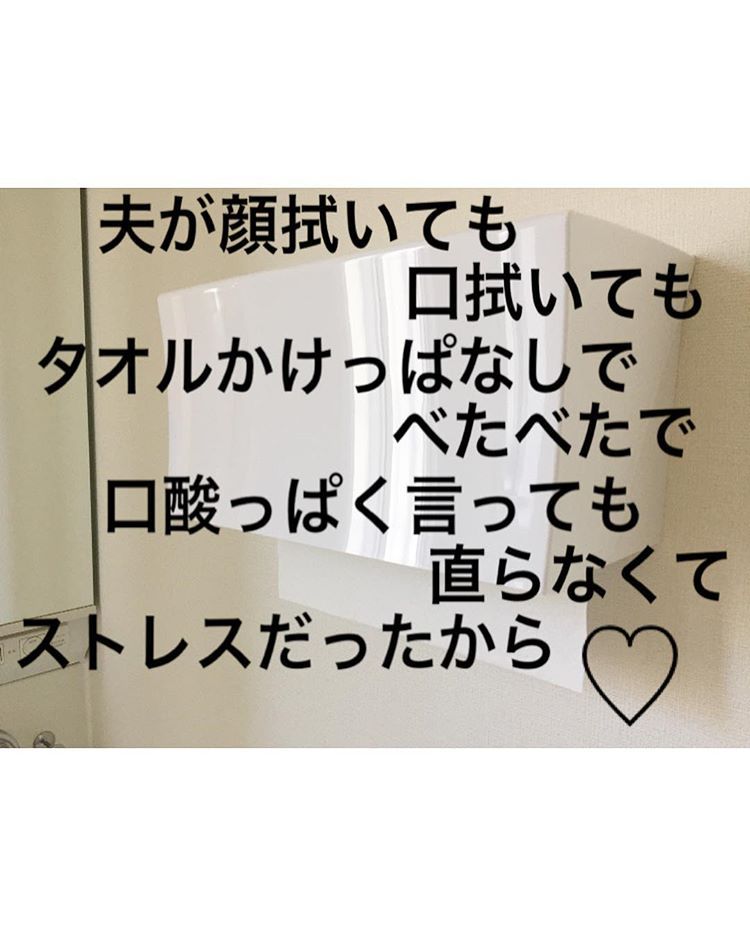 夫が顔拭いても
口拭いても
タオルかけっぱなしで
べたべたで
口酸っぱく言っても
直らなくて
ストレスだったから♡